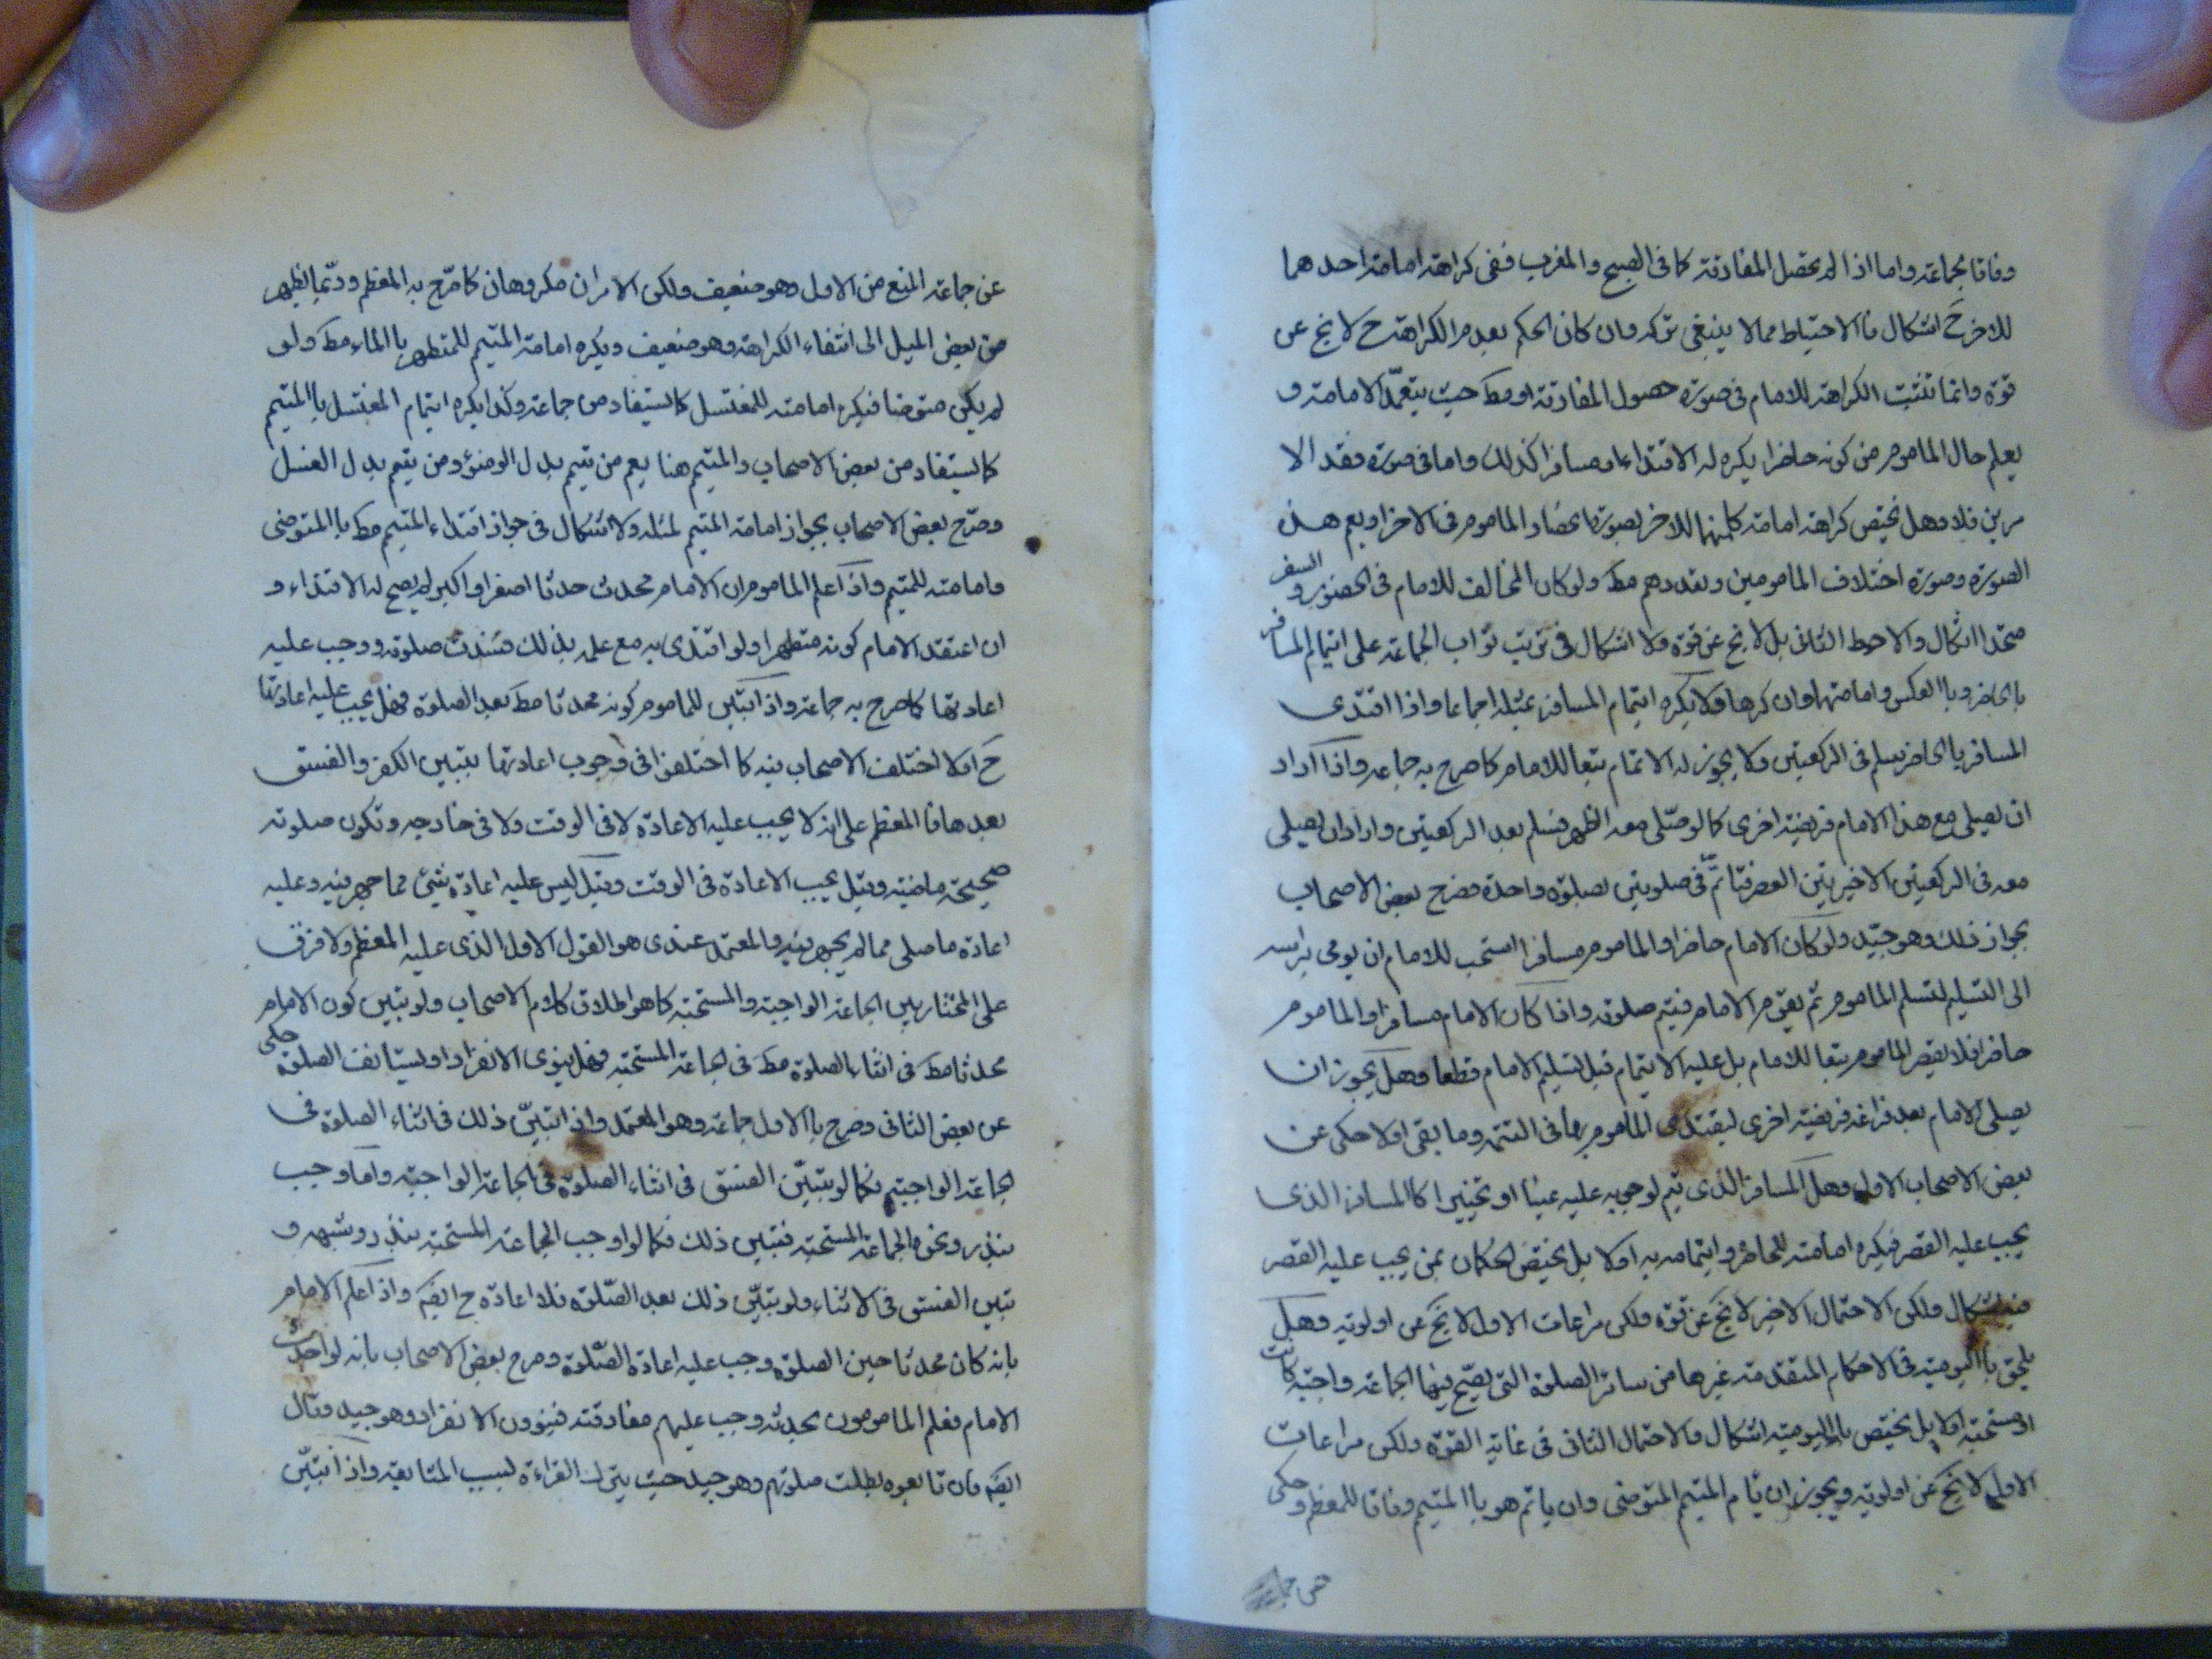 وفاقا لجماعة واما اذا لم يحصل المفارقة كما فى الصبح والمغرب ففى كراهة امامة احدهما
للاخر ح اشكال فالاحتياط مما لا ينبغى تركه وان كان الحكم بعدم الكراهة ح لا يخ عن
قوة وانما تثبت الكراهة للامام فى صورة حصول المفارقة او مط حيث يتعمد الامامة و
يعلم حال الماموم من كونه حاضرا يكره له الاقتداء او مسافرا كذلك واما فى صورة فقد الا
مرين فلا وهل يختص كراهة امامة كل منهما للاخر بصورة انحصار الماموم فى الاخر او يعم هذه
الصورة وصورة اختلاف المامومين وتعددهم مط ولو كان المخالف للامام فى الحضور و السفر
متحدا اشكال والاحوط الثانى بل لا يخ عن قوة ولا اشكال فى ترتب ثواب الجماعة على ايتمام المسافر
بالحاضر وبا العكس وامامتهما وان كرها ولا يكره ايتمام المسافر بمثله اجماعا واذا اقتدى
المسافر باالحاضر يسلم فى الركعتين ولا يجوز له الاتمام تبعا للامام كما صرح به جماعه واذا اراد
ان يصلى مع هذا الامام فريضة اخرى كما لو صلى معه الظهر فسلم بعد الركعتين واراد ان يصلى
معه فى الركعتين الاخيرتين العصر فياتم فى صلوتين بصلوة واحدة فصرح بعض الاصحاب
بجواز ذلك وهو جيد ولو كان الامام حاضرا والماموم مسافرا استحب للامام ان يومى براسه
الى التسليم ليسلم الماموم ثم يقوم الامام فيتم صلوته واذا كان الامام مسافرا والماموم
حاضرا فلا يقصر الماموم تبعا للامام بل عليه الاتمام قبل تسليم الامام قطعا وهل يجوز ان
يصلى الامام بعد فراغه فريضة اخرى ليقتدى الماموم بها فى التتمه وما بقى اولا حكى عن
بعض الاصحاب الاول وهل المسافر الذى يتم لوجوبه عليه عينا او تخييرا كاالمسافر الذى
يجب عليه القصر فيكره امامته للحاضر وايتمامه به اولا بل يختص الحكمان بمن يجب عليه القصر
فيه اشكال ولكن الاحتمال الاخير لا يخ عن قوة ولكن مراعات الاول لا يخ عن اولوية وهل
يلحق باليومية فى الاحكام المتقدمة غيرها من سائر الصلوة التى يصح فيها الجماعة واجبة كانت
او مستحبة اولا بل يختص باليومية اشكال والاحتمال الثانى فى غاية القوة ولكن مراعات
الاول لا يخ عن اولوية ويجوز ان يام المتيمم المتوضى وان ياتم هو با المتيمم وفاقا للمعظم وحكى
عن جماعة المنع من الاول وهو ضعيف ولكن الامران مكروهان كما صرح به المعظم وربما يظهر
من بعض الميل الى انتفاء الكراهة وهو ضعيف ويكره امامة المتيمم للمتطهر باالماء مط ولو
لم يكن متوضا فيكره امامته للمغتسل كما يستفاد من جماعة وكذا يكره ايتمام المغتسل باالمتيمم
كما يستفاد من بعض الاصحاب والمتيمم هنا يعم من تيمم بدل الوضوء ومن يتمم بدل الغسل
وصرح بعض الاصحاب بجواز امامة المتيمم لمثله ولا اشكال فى جواز اقتداء المتيمم مط باالمتوضى
وامامته للمتيمم واذا علم الماموم ان الامام محدث حدثا اصغر او اكبر لم يصح له الاقتداء و
ان اعتقد الامام كونه متطهرا ولو اقتدى به مع علمه بذلك فسدت صلوته ووجب عليه
اعادتها كما صرح به جماعة واذا تبين للماموم كونه محدثا مط بعد الصلوة فهل يجب عليه اعادتها
ح اولا اختلف الاصحاب فيه كما اختلفوا فى وجوب اعادتها بتبين الكفر والفسق
بعدها فا المعظم على انه لا يجب عليه الاعادة لا فى الوقت ولا فى خارجه وتكون صلوته
صحيحة ماضية وقيل يجب الاعادة فى الوقت وقيل ليس عليه اعادة شئ مما جهر فيه وعليه
اعادة ما صلى مما لم يجهر فيه والمعتمد عندى هو القول الاول الذى عليه المعظم ولا فرق
على المختار بين الجماعة الواجبة والمستحبة كما هو اطلاق كلام الاصحاب ولو تبين كون الامام
محدثا مط فى اثناء الصلوة مط فى الجماعة المستحبة فهل ينوى الانفراد او يستانف الصلوة حكى
عن بعض الثانى وصرح باالاول جماعة وهو المعتمد واذا تبين ذلك فى اثناء الصلوة فى
الجماعة الواجبة فكما لو تبين الفسق فى اثناء الصلوة فى الجماعة الواجبة واما وجب
بنذر ونحوه الجماعة المستحبة فتبين ذلك فكما لو اوجب الجماعة المستحبة بنذر وشبهه و
تبين الفسق فى الاثناء ولو تبين ذلك بعد الصلوة فلا اعادة ح ايضا واذا علم الامام
بانه كان محدثا حين الصلوة وجب عليه اعادة الصلوة وصرح بعض الاصحاب بانه لو احدث
الامام فعلم المامومون بحدثه وجب عليهم مفارقته فينوون الانفراد وهو جيد وقال
ايضا فان تابعوه بطلت صلوتهم وهو جيد حيث يترك القراءة لسبب المتابعة واذا تبين